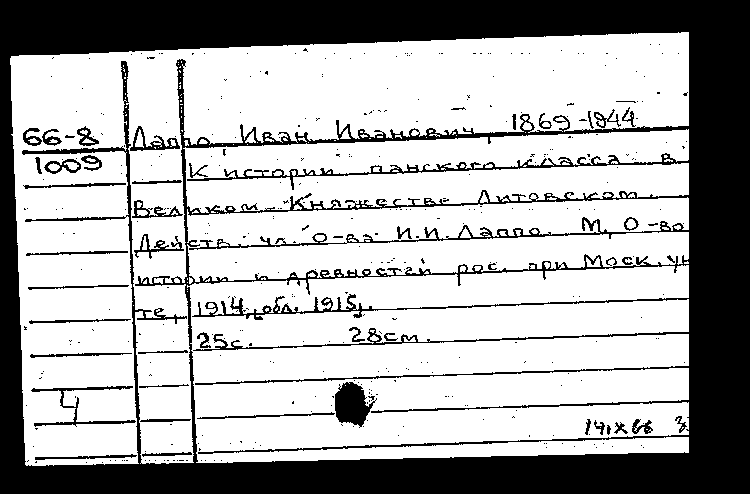 66-8 Лаппо, Иван Иванович, 1869-1944
1009 К истории панского класса в
Великом Княжестве Литовском.
Действ. чл. О-ва И.И. Лаппо. М, О-во
истории и древностей рос. при Моск. ун
те, 1914, обл. 1915.
25с. 28см.
4
14IX66